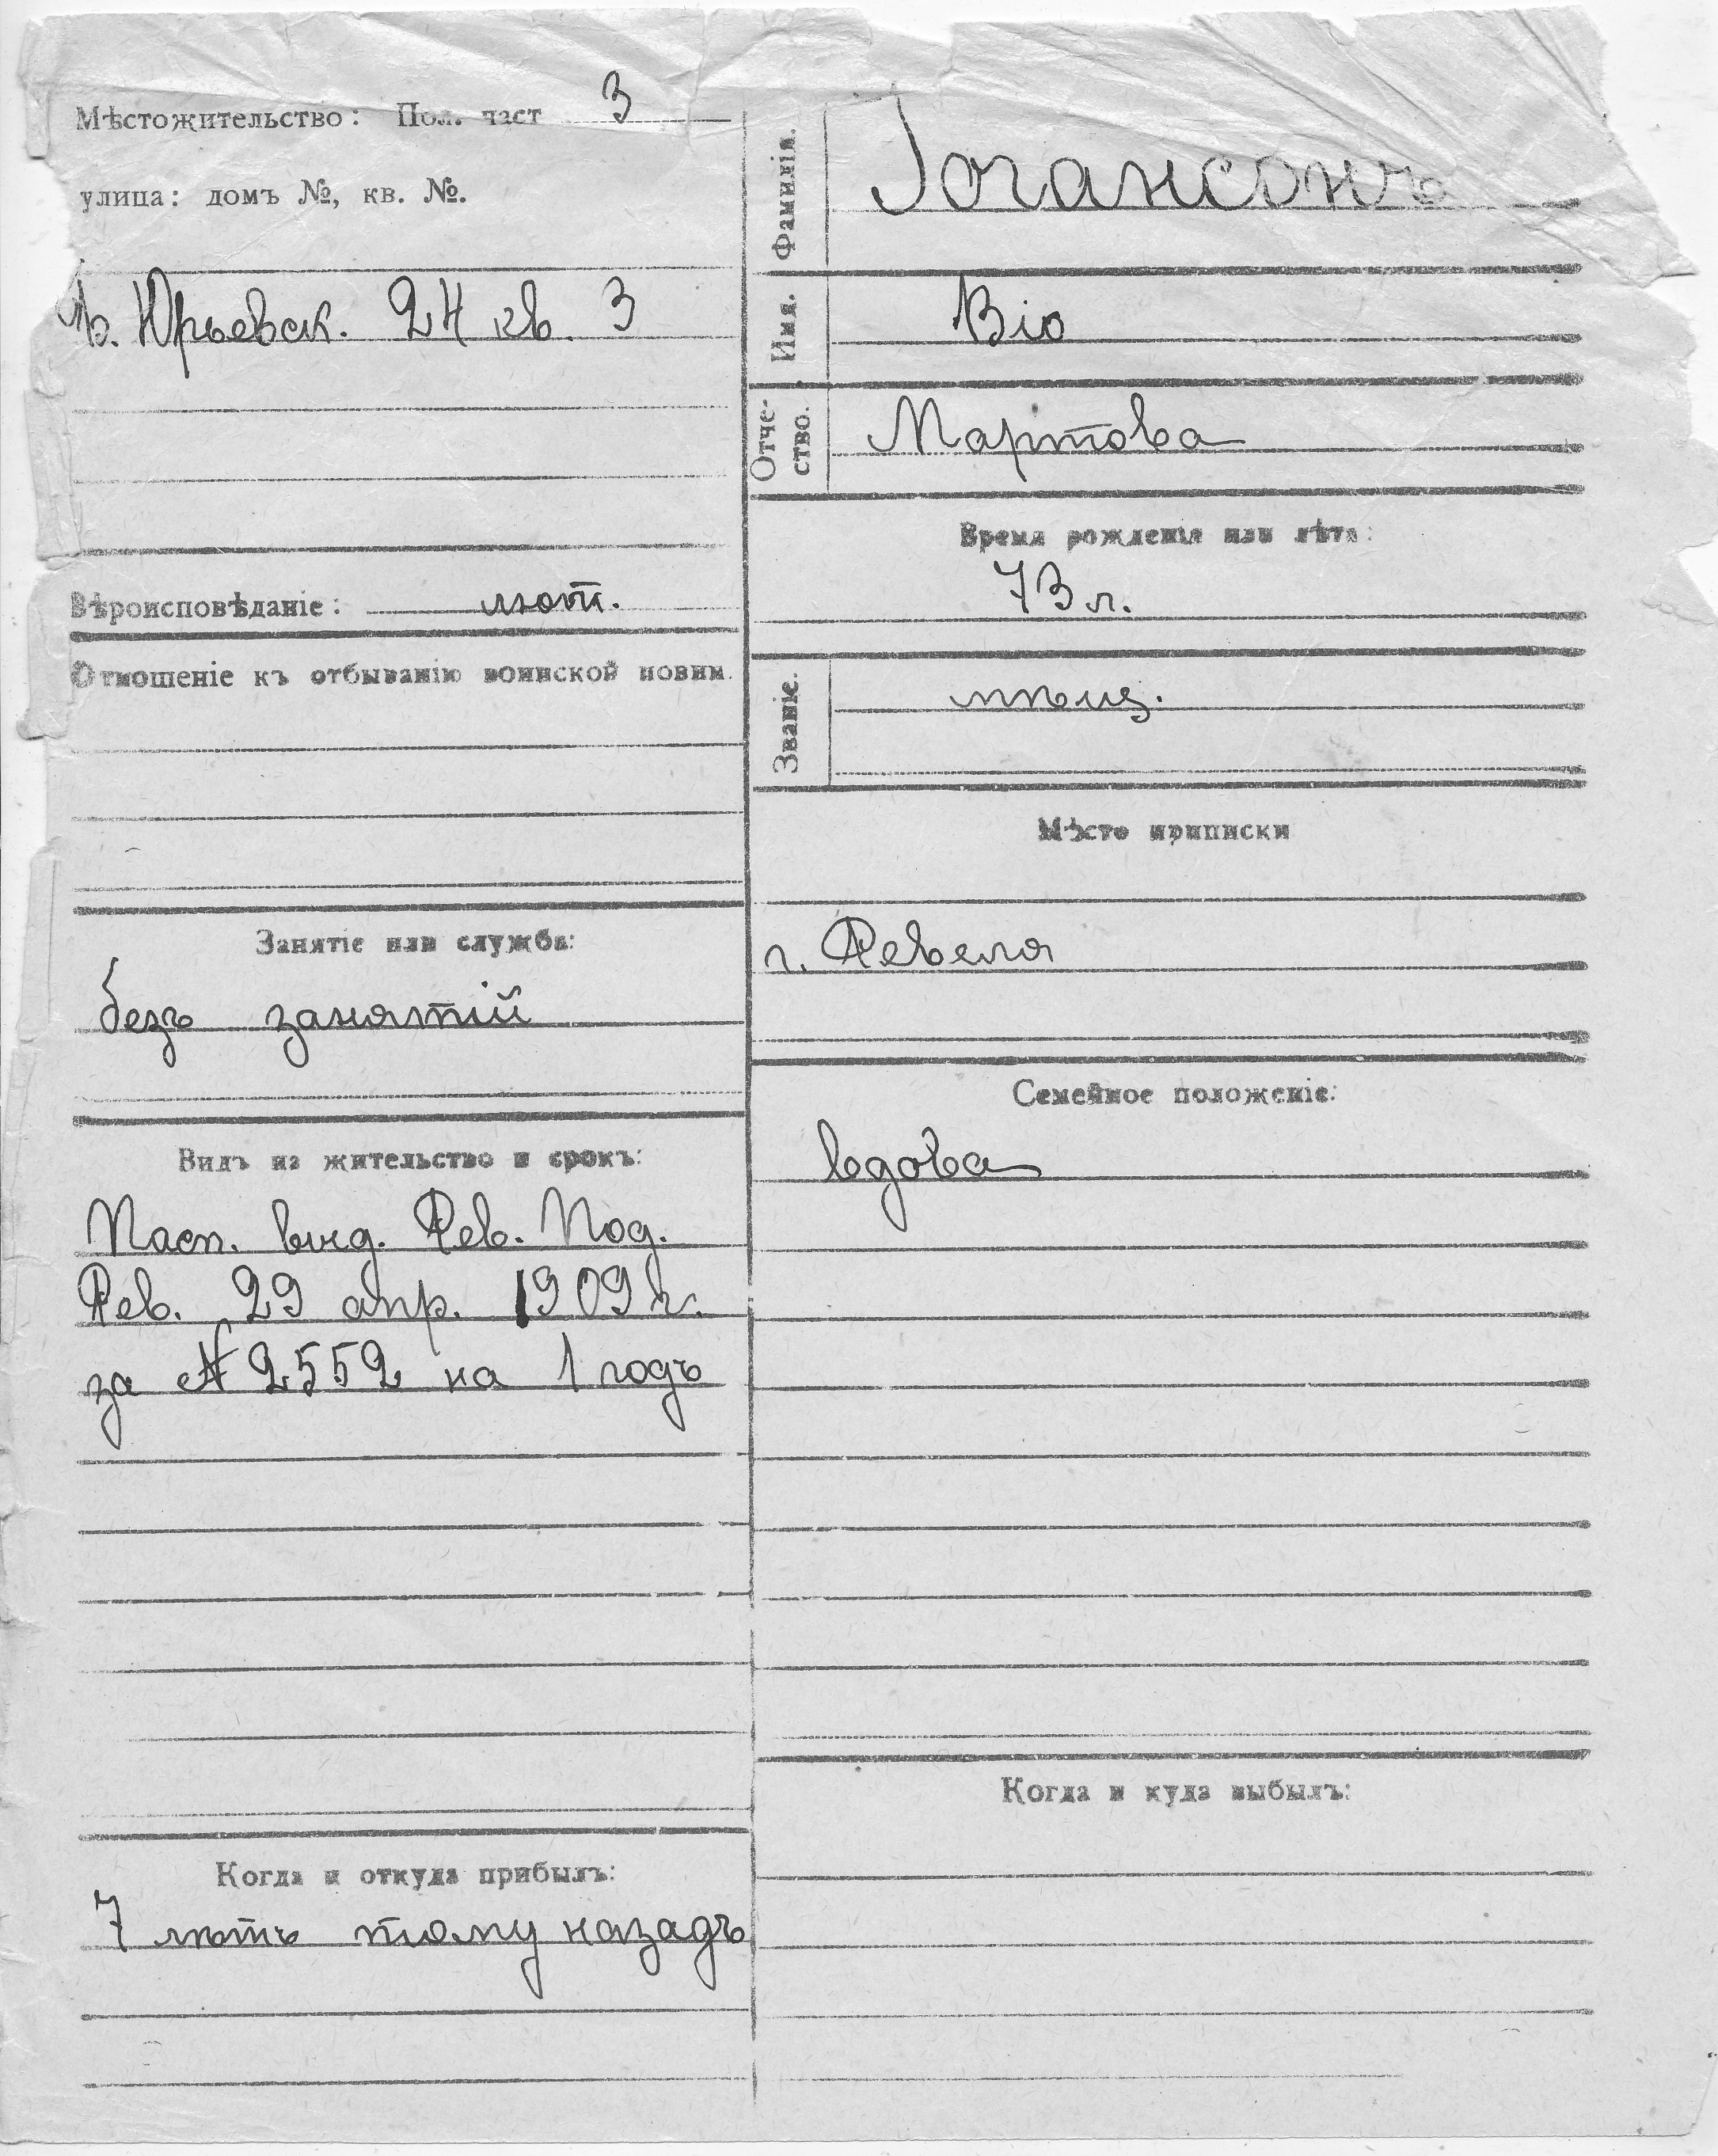 Мѣстожительство: Пол. част 3
улица: домъ №, кв. №.
Б. Юрьевск. 24 кв. 3
Вѣроисповѣданіе: лют.
Отношеніе къ отбыванію воинской повин.
Занятіе или служба:
безъ занятій
Видъ на жительство и срокъ:
Пасп. выд. Рев. Под.
Рев. 29 апр. 1909 г.
за № 2552 на 1 годъ
Когда и откуда прибылъ:
7 лѣтъ тому назадъ
Фамилія. Іогансонъ
Имя. Віо
Отче-
ство. Мартова
Время рожденія или лѣта:
73 л.
Званіе. мѣщ.
Мѣсто приписки
г. Ревеля
Семейное положеніе:
вдова
Когда и куда выбылъ: